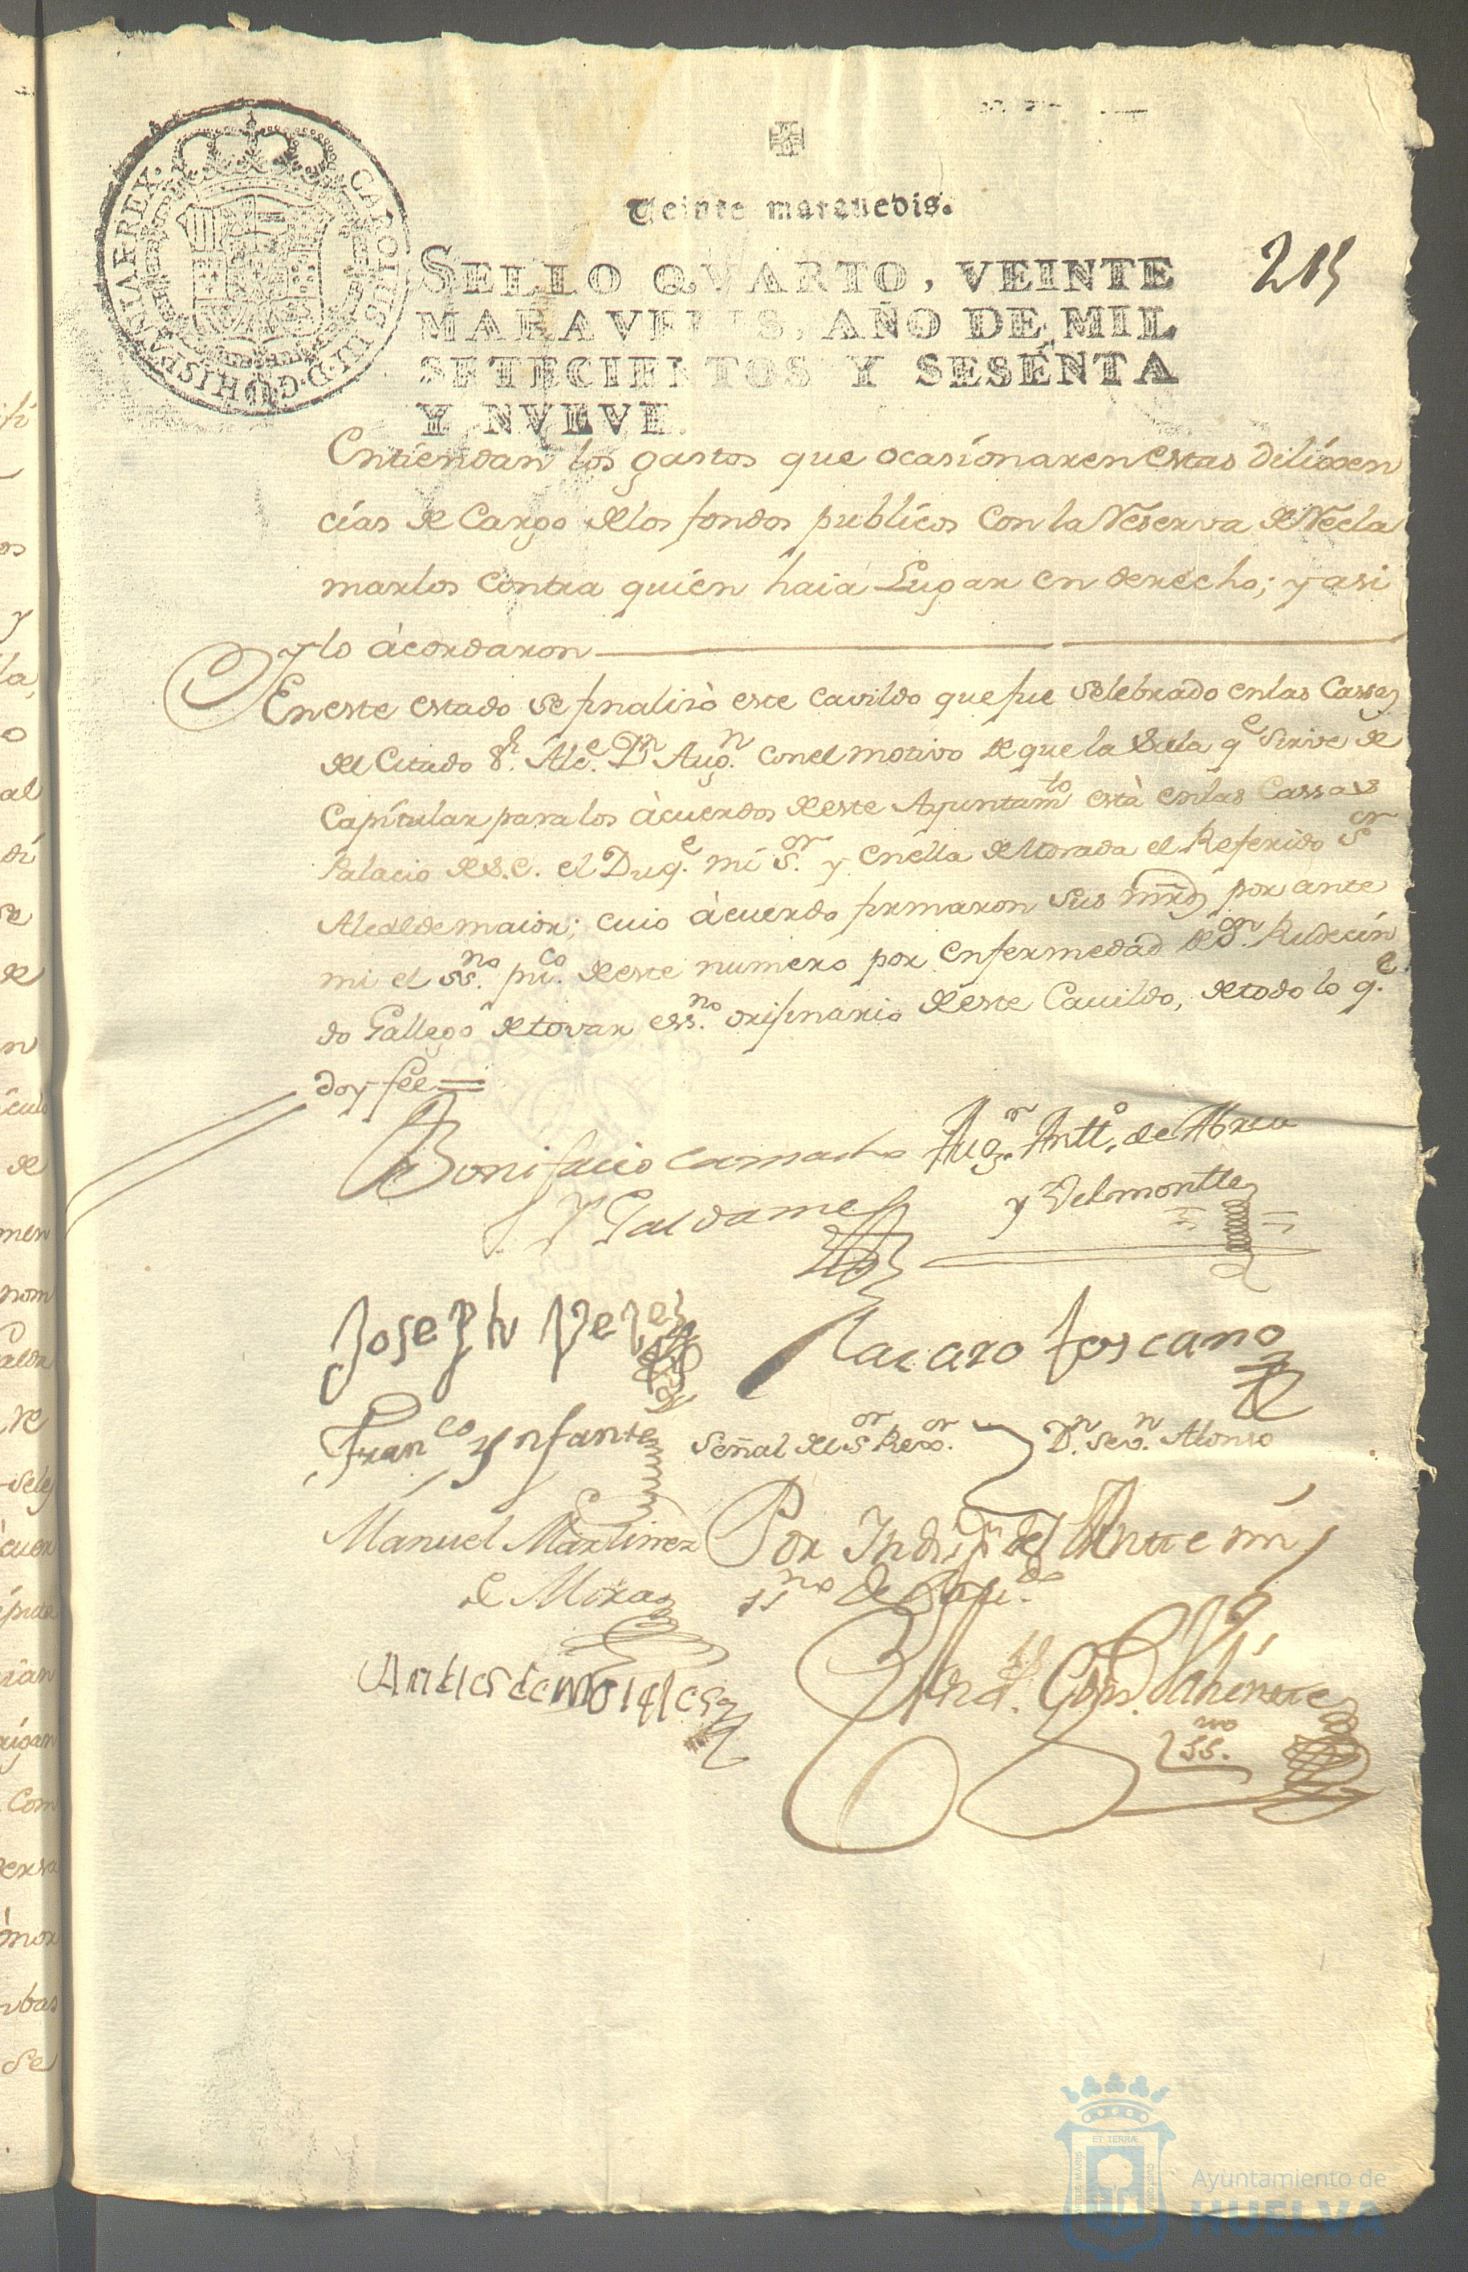 CAROLUS III D.G. HISPANIAR REX.
Veinte maravedis.
SELLO QVARTO, VEINTE
MARAVEDIS, AÑO DE MIL
SETECIENTOS Y SESENTA
Y NVEVE.
215
Entiendan los gastos que ocasionaren estas dilixen
cias de Cargo de los fondos publicos con la Reserva de Recla
marlos contra quien haia Lugar en derecho; y asi
lo acordaron
En este estado se finalizò este cavildo que fue Selebrado en las Cassas
del Citado Sr. Alce. Dn Augn. con el motivo de que la Sala qe Sirve de
Capitular para los àcuerdos de este Ayuntamto està en las Cassas
Palacio de S.E. el Duqe. mi Sor. y en ella de Morada el Referido Sor
Alcalde maior; cuio àcuerdo firmaron Sus mrds por ante
mi el SSno. puco. de este numero por enfermedad de Dn. Rudecin
do Gallego de tovar essno. orijinario de este Cavildo, de todo lo qe.
doy fee
Bonifacio Camacho
Y Galdames
Augn. Antto. de Abreu
y Velmontte
Joseph Velez
Lazaro toscano
Franco Ynfante
Señal del Sor Rexor. Dn. Sevn. Alonso
Manuel Martinez
de Mora
Por Indispn. del Ante mi
SSno de Cavdo.
Andres de Morales
SSno.
Ayuntamiento de
HUELVA